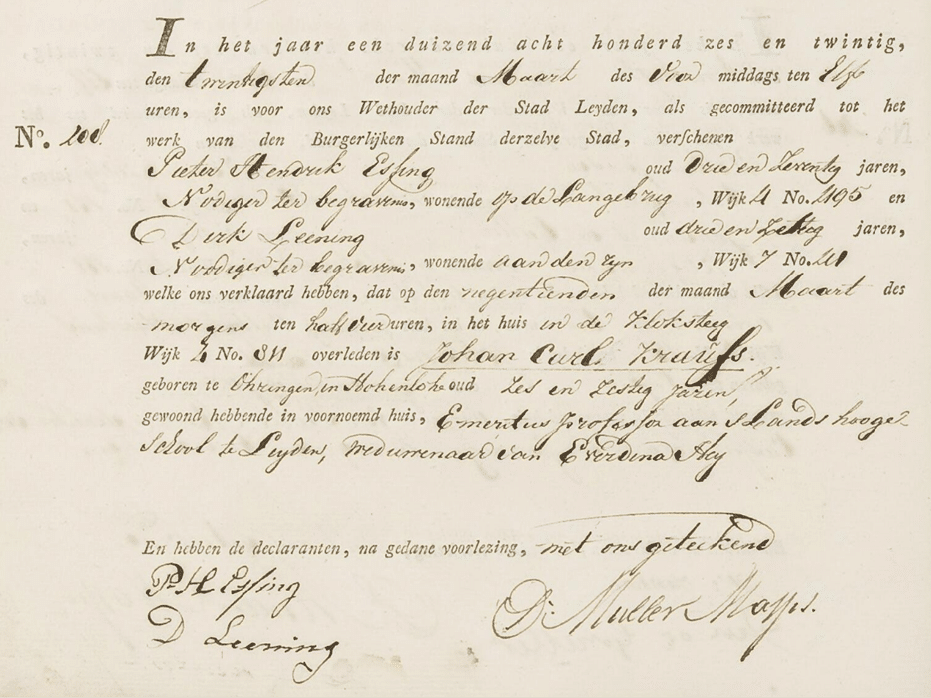 In het jaar een duizend acht honderd zes en twintig,
den twintigsten der maand Maart des Voor middags ten Elf
uren, is voor ons Wethouder der Stad Leyden, als gecommitteerd tot het
No. 208. werk van den Burgerlijken Stand derzelve Stad, verschenen
Pieter Hendrik Essing oud Drie en Zeventig jaren,
Noodiger ter begravenis, wonende op de Langebrug, Wijk 4 No. 495 en
Dirk Leening oud drie en Zestig jaren,
Noodiger ter begravenis, wonende aan den ryn, Wijk 7 No. 41
welke ons verklaard hebben, dat op den negentienden der maand Maart des
morgens ten half vier uren, in het huis in de Kloksteeg
Wijk 2 No. 311 overleden is Johan Carl Krauss.
geboren te Ohringen, in Hohenlohe oud zes en zestig jaren,
gewoond hebbende in voornoemd huis, Emeritus professor aan s Lands hooge
School te Leyden, weduwenaar van Everdina Hey
En hebben de declaranten, na gedane voorlezing, met ons geteekend
P. H Essing
D Leening
Dr. Muller Massis.